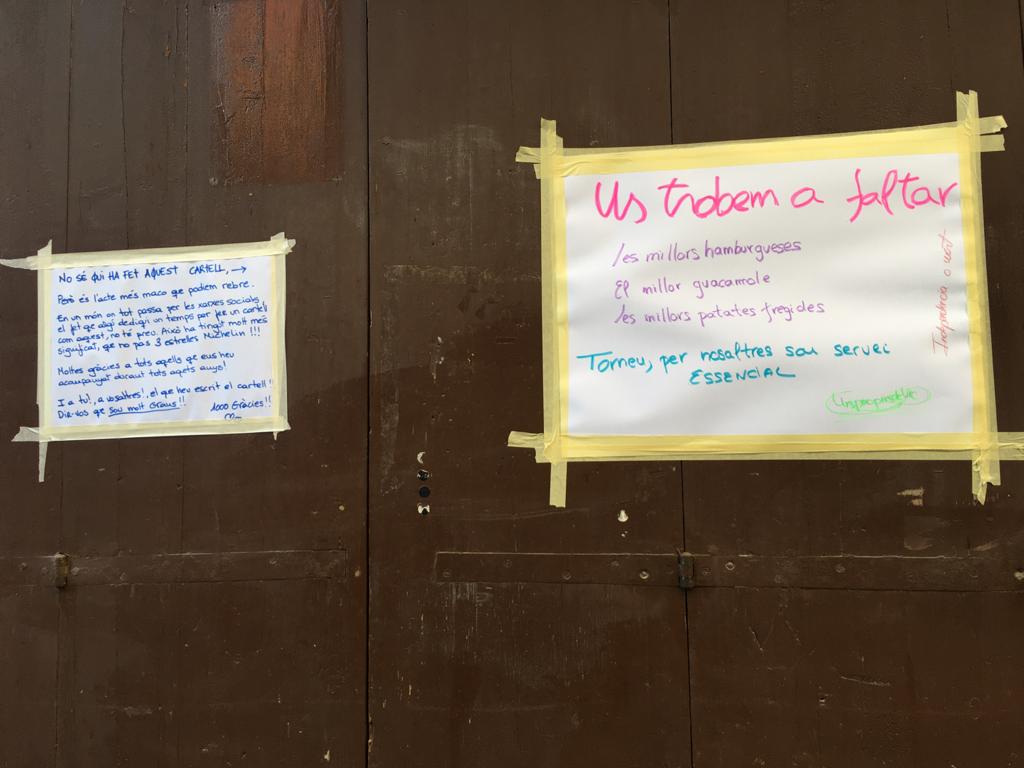 NO SÉ QUI HA FET AQUEST CARTELL, →
Però és l'acte més maco que podem rebre.
En un món on tot passa per les xarxes socials,
el fet que algú dediqui un temps per fer un cartell
com aquest, no té preu. Això ha tingut molt més
significat, que no pas 3 estrelles Michelin !!!
Moltes gràcies a tots aquells que ens heu
acompanyat durant tots aquets anys!
I a tu!, a vosaltres!, el que heu escrit el cartell!
Dir-vos que Sou molt Grans!!
1000 Gràcies!!
Us trobem a faltar
les millors hamburgueses
El millor guacamole
les millors patates fregides
Torneu, per nosaltres sou servei
ESSENCIAL